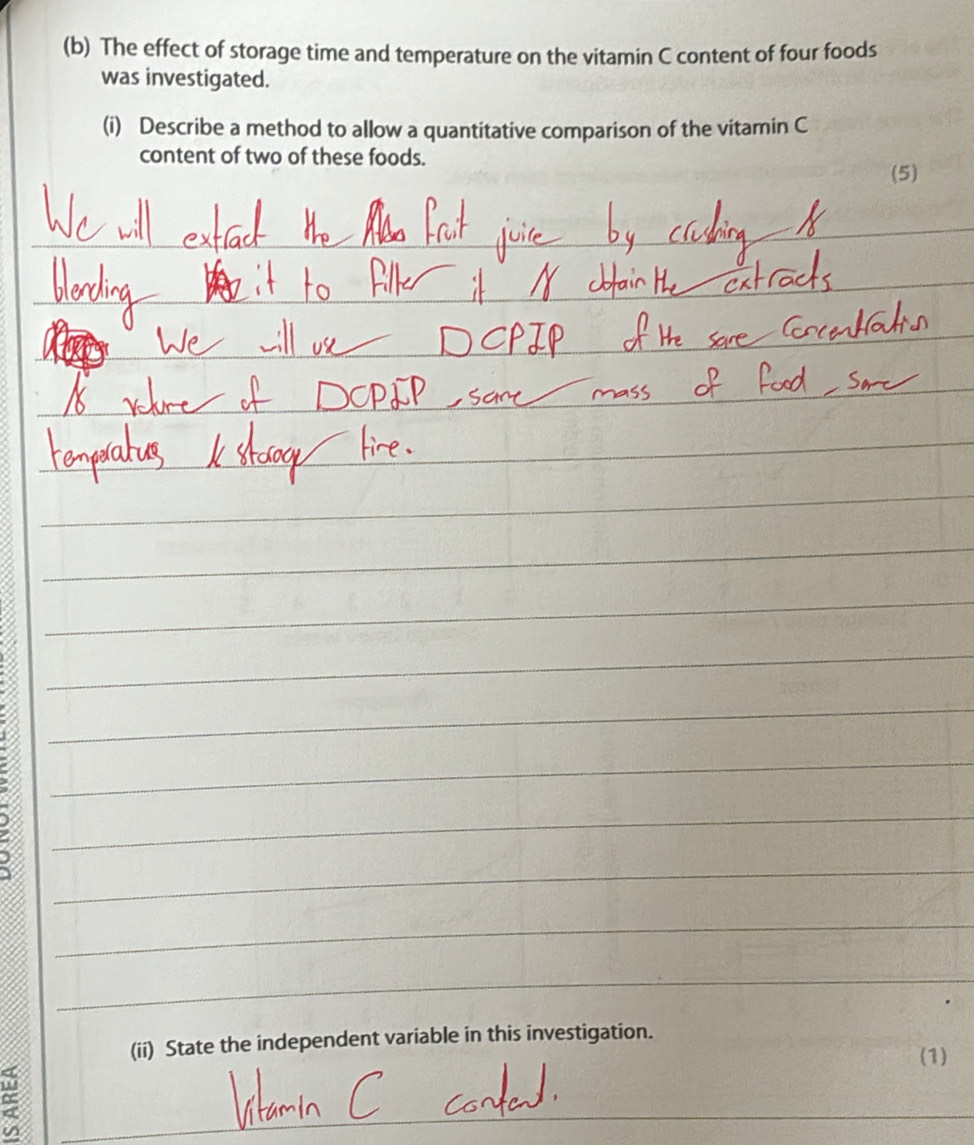 (b) The effect of storage time and temperature on the vitamin C content of four foods
was investigated.
(i) Describe a method to allow a quantitative comparison of the vitamin C
content of two of these foods.
(5)
We will extract the fruit juice by crushing &
blending it to filter it & obtain the extracts
We will use DCPIP of the same concentration
& volume of DCPIP, same mass of food, same
temperature & storage time.
(ii) State the independent variable in this investigation.
(1)
Vitamin C content.
IS AREA